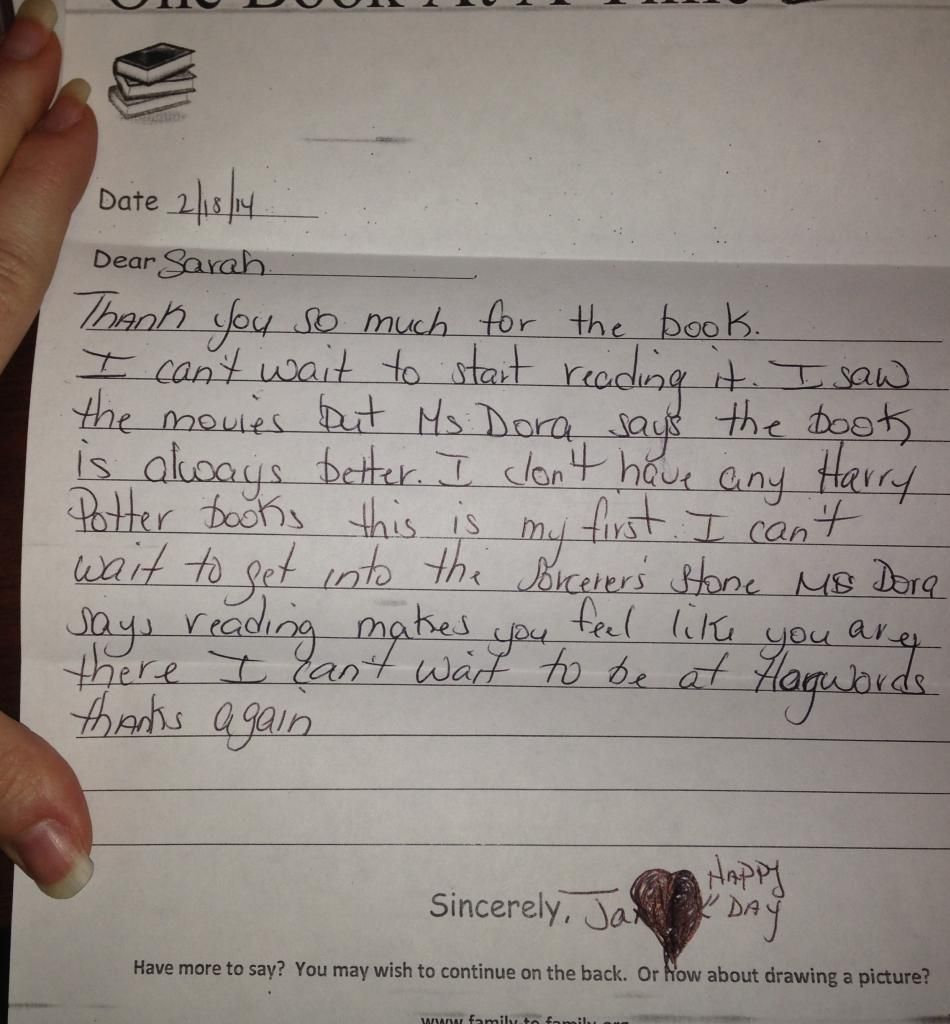 One Book At A Time
Date 2/18/14
Dear Sarah
Thank you so much for the book.
I can't wait to start reading it. I saw
the movies but Ms Dora says the book
is always better. I don't have any Harry
Potter books this is my first. I can't
wait to get into the Sorcerer's Stone Ms Dora
says reading makes you feel like you are
there I can't wait to be at Hagwords
thanks again
Sincerely,
HAPPY
DAY
Have more to say? You may wish to continue on the back. Or how about drawing a picture?
www.family-to-family.org